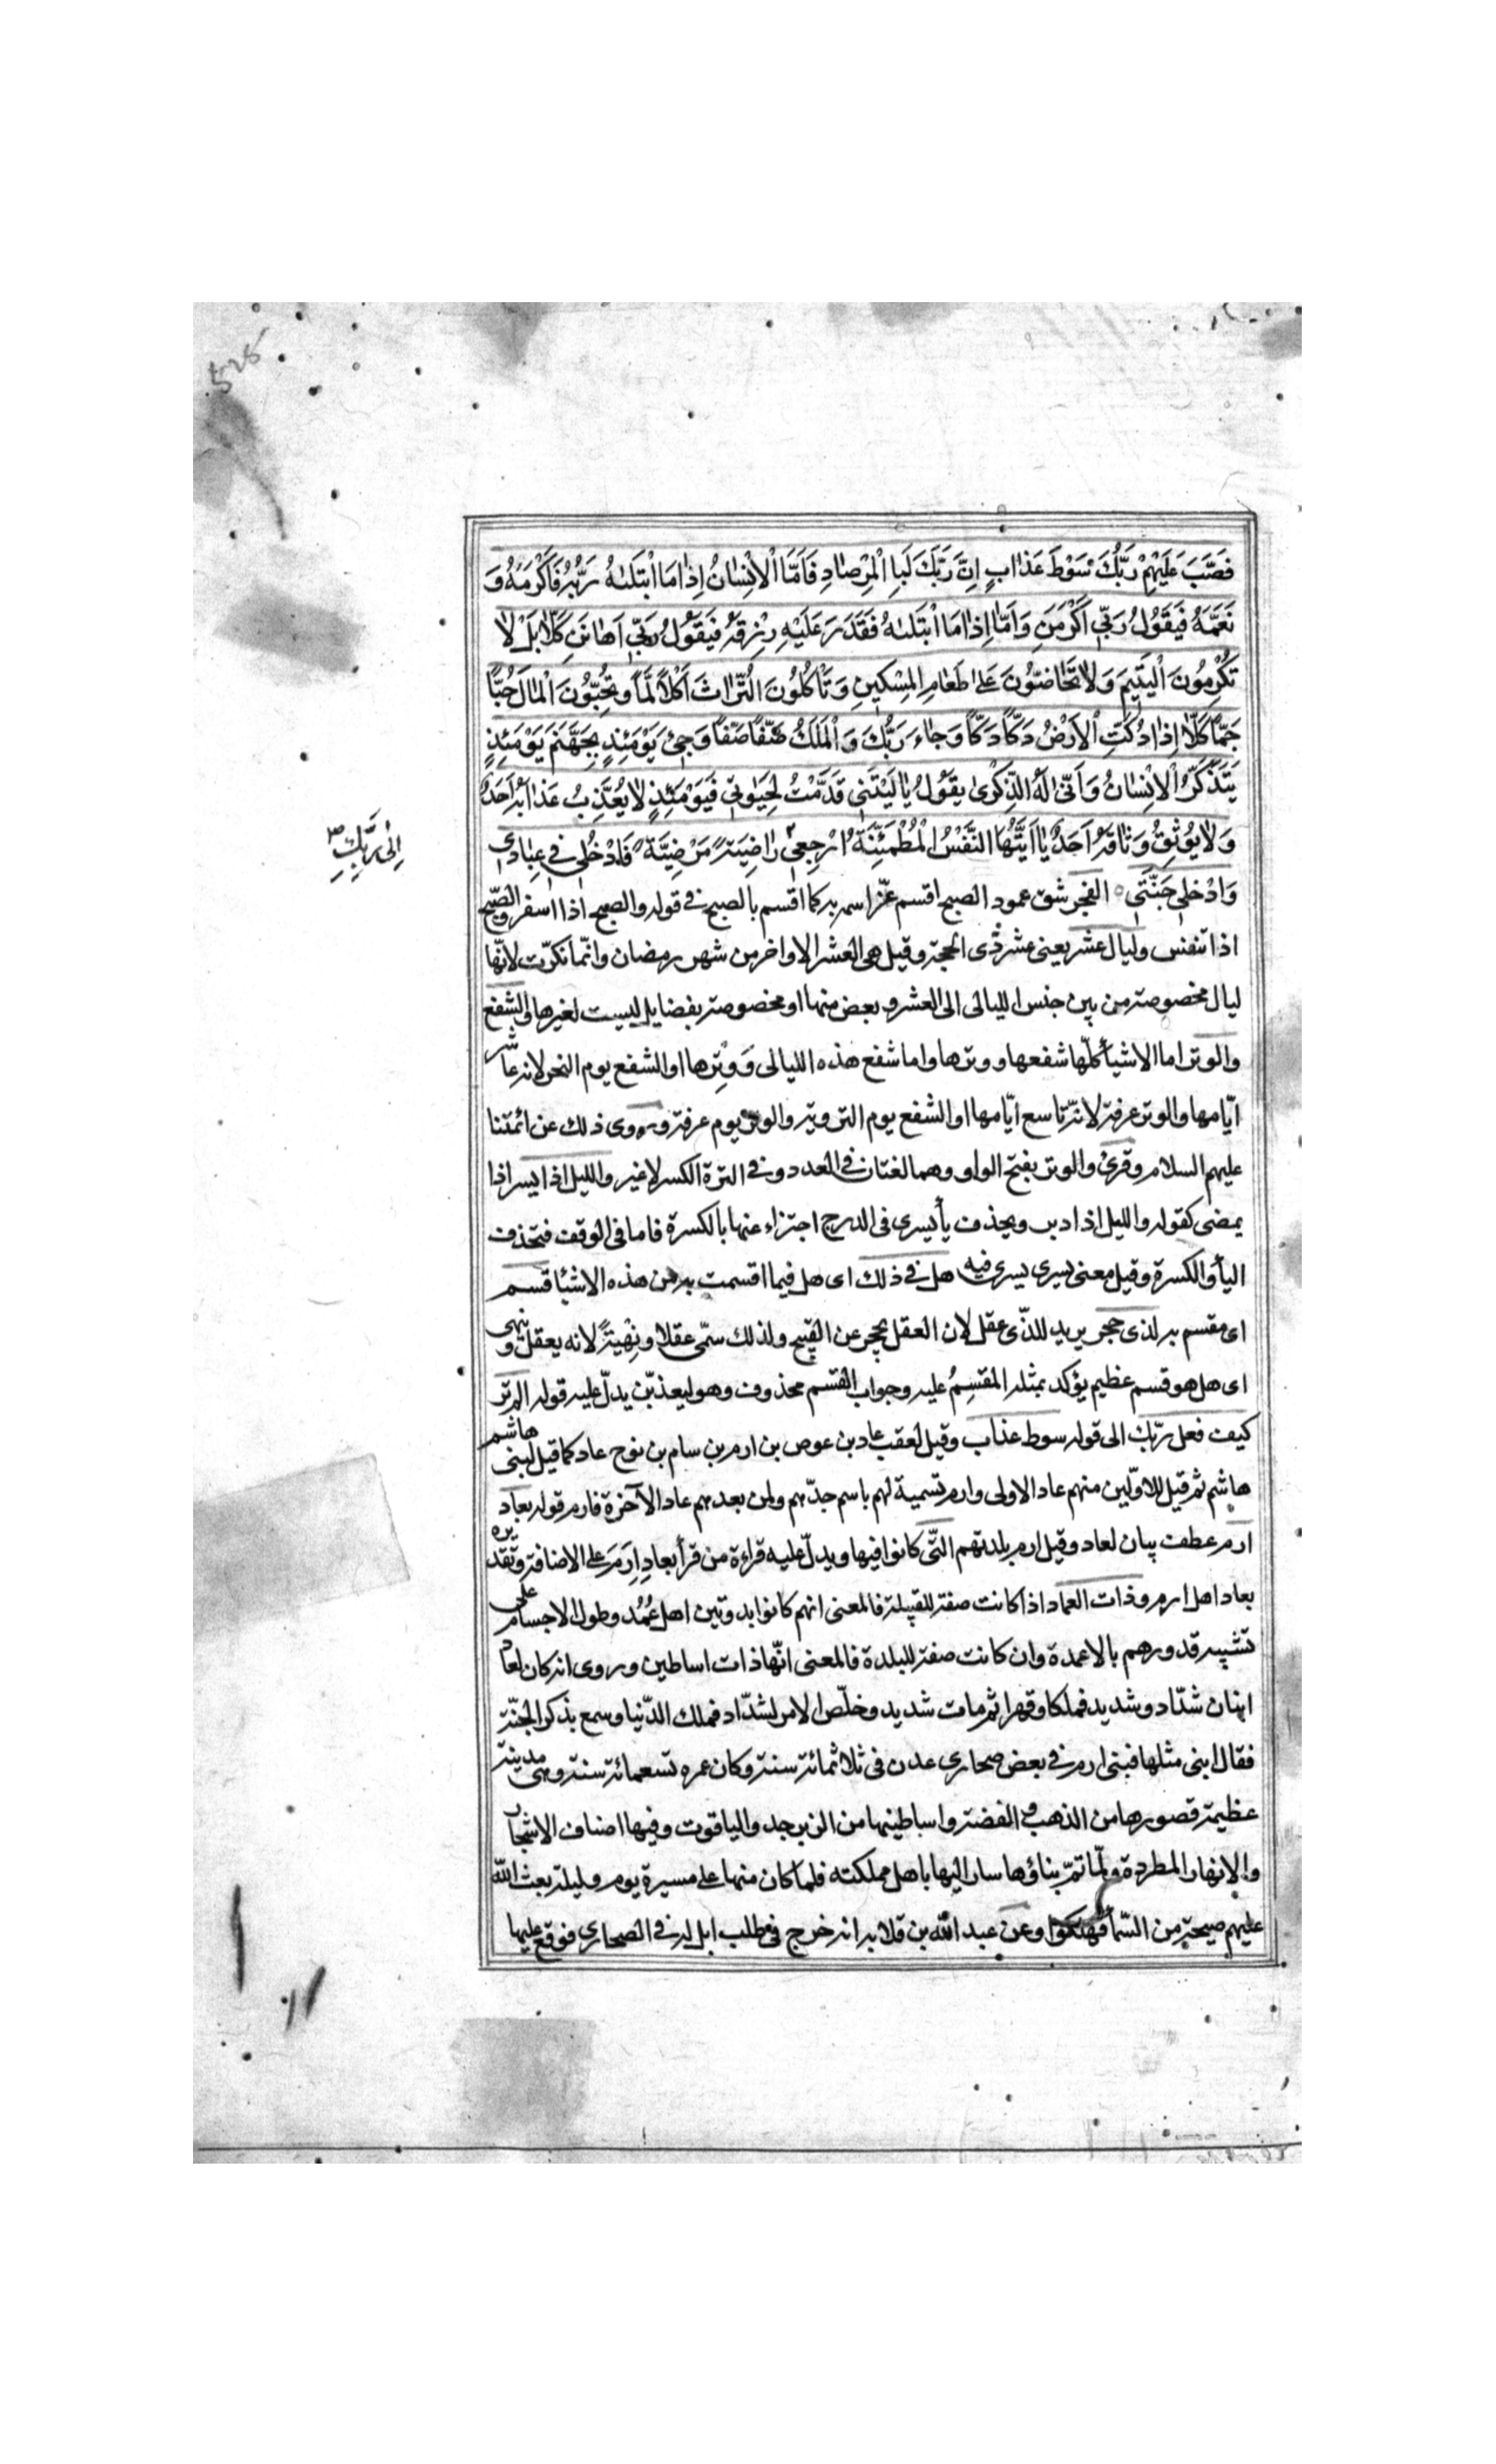 525
فَصَبَّ عَلَيْهِمْ رَبُّكَ سَوْطَ عَذَابٍ اِنَّ رَبَّكَ لَبِا الْمِرْصَادِ فَاَمَّا الْاِنْسَانُ اِذَا مَا ابْتَلَيٰهُ رَبُّهُ فَاَكْرَمَهُ وَ
نَعَّمَهُ فَيَقُولُ رَبّى اَكْرَمَنِ وَاَمَّا اِذَا مَا ابْتَلَيٰهُ فَقَدَرَ عَلَيْهِ رِزْقَهُ فَيَقُولُ رَبّى اَهَانَنِ كَلَّا بَلْ لَا
تُكْرِمُونَ الْيَتِيمَ وَلَا تَحَاضُّونَ عَلىٰ طَعَامِ الْمِسْكِينِ وَتَأْكُلُونَ التُّرَاثَ اَكْلًا لَمًّا وَتُحِبُّونَ الْمَالَ حُبًّا
جَمًّا كَلَّا اِذَا دُكَّتِ الْاَرْضُ دَكًّا دَكًّا وَجَاءَ رَبُّكَ وَالْمَلَكُ صَفًّا صَفًّا وَجِئَ يَوْمَئِذٍ بِجَهَنَّمَ يَوْمَئِذٍ
يَتَذَكَّرُ الْاِنْسَانُ وَاَنّىٰ لَهُ الذِّكْرىٰ يَقُولُ يَا لَيْتَنِى قَدَّمْتُ لِحَيٰوتِى فَيَوْمَئِذٍ لَا يُعَذِّبُ عَذَابَهُ اَحَدٌ
وَلَا يُوثِقُ وَثَاقَهُ اَحَدٌ يَا اَيَّتُهَا النَّفْسُ الْمُطْمَئِنَّةُ ارْجِعِى رَاضِيَةً مَرْضِيَّةً فَادْخُلِى فِى عِبَادِى
اِلٰى رَبِّكِ
وَادْخُلِى جَنَّتِى الفجر شق عمود الصبح اقسم عزّ اسمه به كما اقسم بالصبح فى قوله والصبح اذا اسفر والصّبح
اذا تنفس وليال عشر يعنى عشر ذى الحجة وقيل هى العشر الاواخر من شهر رمضان وانّما نكرّت لانّها
ليال مخصوصة من بين جنس الليالى الى العشر و بعض منها او مخصوصة بفضايل ليست لغيرها والشفع
والوتر اما الاشيأ كلّها شفعها ووترها واما شفع هذه الليالى وَوِتِرها او الشفع يوم النحر لانه عاشر
ايّامها والوتر عرفة لانّه تاسع ايّامها او الشفع يوم التروية والوتر يوم عرفة وروى ذلك عن ائمّتنا
عليهم السلام وقرئ والوتر بفتح الواو وهما لغتان فى العدد وفى الترة الكسر لا غير والليل اذا يسر اذا
يمضى كقوله والليل اذا دبر ويحذف يأ يسرى فى الدرج اجتزاء عنها بالكسرة فاما فى الوقف فتحذف
اليأ والكسرة وقيل معنى يسرى يسرى فيه هل فى ذلك اى هل فيما اقسمت به من هذه الاشئا قسم
اى مقسم به لذى حجر يريد للذّى عقل لان العقل يحجر عن القبيح ولذلك سمّى عقلا ونهيةً لانه يعقل وينهى
اى هل هو قسم عظيم يؤكد بمثله المقسِمُ عليه وجواب القسم محذوف وهو ليعذبّن يدلّ عليه قوله المرتر
كيف فعل ربّك الى قوله سوط عذاب وقيل لعقب عاد بن عوص بن ارم بن سام بن نوح عاد كما قيل لبنى هاشم
هاشم ثم قيل للاوّلين منهم عاد الاولى وارم تسمية لهم باسم جدّهم ولمن بعدهم عاد الآخرة فارم قوله بعاد
ارم عطف بيان لعاد وقيل ارم بلدتهم التّى كانوا فيها ويدلّ عليه قراءة من قرأ بعادِ اِرَمَ على الاضافة وتقديره
بعاد اهل ارم وذات العماد اذا كانت صفة للقبيلة فالمعنى انهم كانوا بدوتين اهل عُمُد وطول الاجسام على
تشبيه قدورهم بالاعمدة وان كانت صفة للبلدة فالمعنى انّها ذات اساطين وروى انه كان لعاد
ابنان شدّاد وشديد فملكا وقهرا ثم مات شديد وخلّص الامر لشدّاد فملك الدّنيا وسمع بذكر الجنّة
فقال ابنى مثلها فبنى ارم فى بعض صحارى عدن فى ثلاثمائة سنة وكان عمره تسعمائة سنة وهى مدينة
عظيمة قصورها من الذهب والفضة واساطينها من الزبرجد والياقوت وفيها اصناف الاشجار
والانهار المطردة ولمّا تمّ بناؤها سار اليها باهل مملكته فلما كان منها على مسيرة يوم وليلة بعث اللّه
عليهم صيحة من السّمأ فهلكوا وعن عبد اللّه بن قلابه انه خرج فى طلب ابل له فى الصحارى فوقع عليها